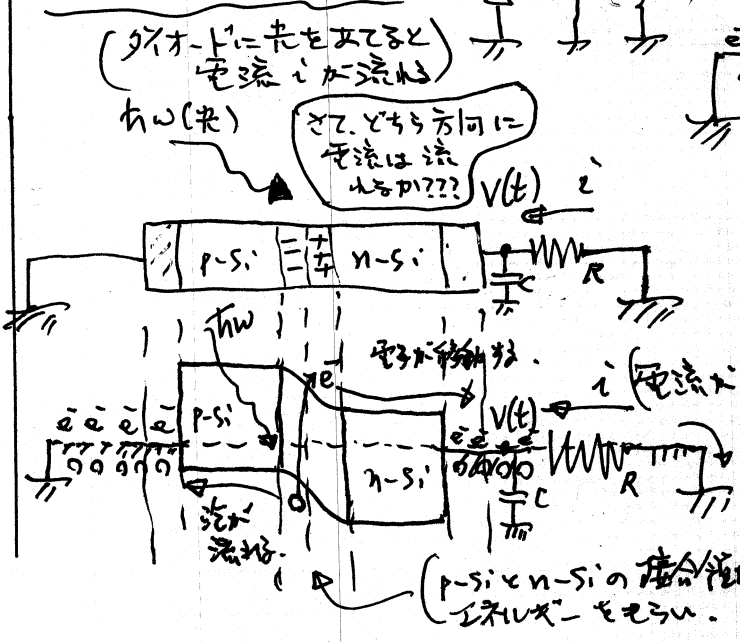 (ダイオードに光をあてると
電流 i が流れる)
ħω(光)
さて、どちら方向に
電流は流
れるか???
V(t) i
p-Si n-Si
C R
ħω
電子が移動する.
e⁻
e⁻ e⁻ e⁻ e⁻
p-Si
V(t) i (電流が
e⁻ e⁻ e⁻
n-Si
C R
流れる.
(p-Siとn-Siの接合
エネルギーをもらい.